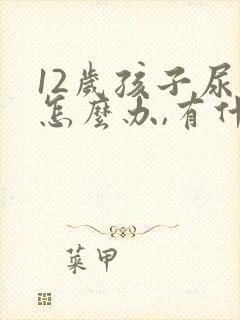 12歲孩子尿
怎麼办,有什
菜甲